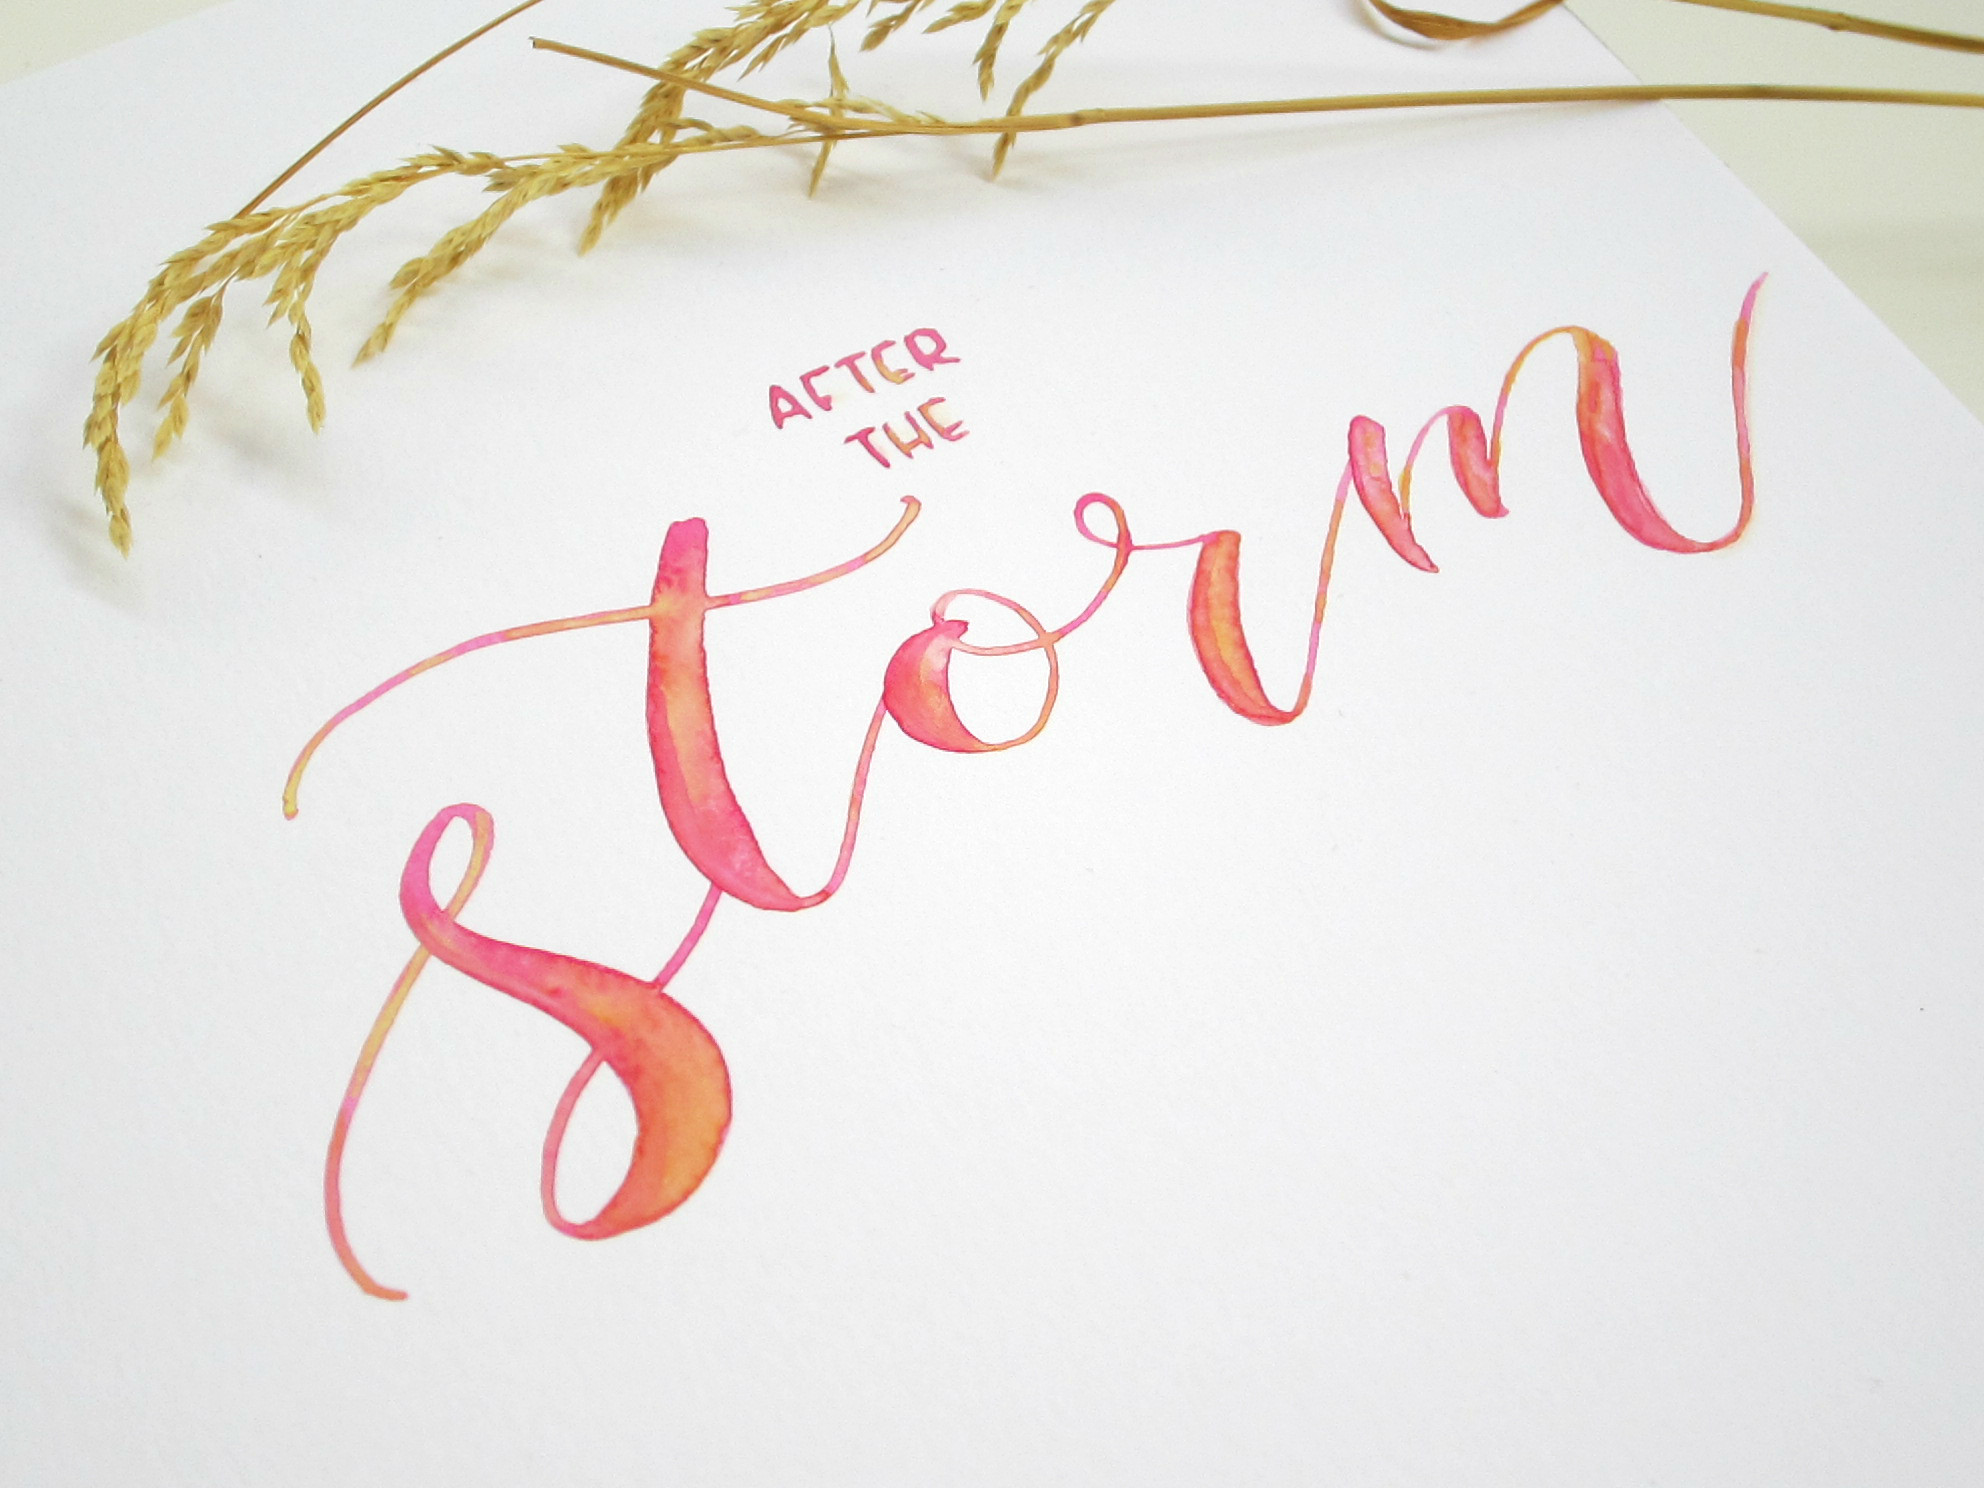 AFTER
THE
storm